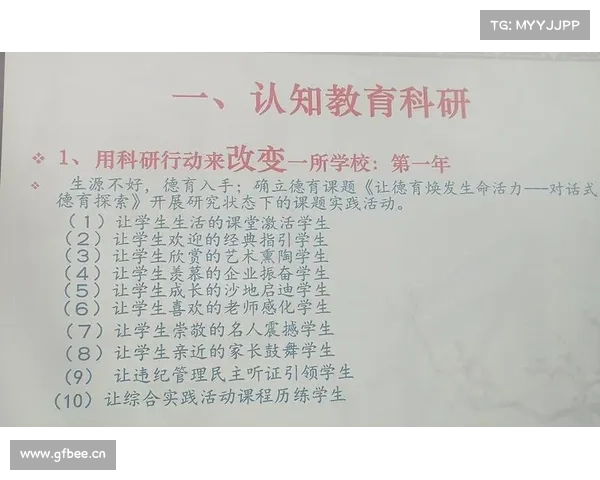 TG: MYYJJPP
一、认知教育科研
1、用科研行动来改变一所学校：第一年
生源不好，德育入手；确立德育课题《让德育焕发生命活力——对话式
德育探索》开展研究状态下的课题实践活动。
（1）让学生生活的课堂激活学生
（2）让学生欢迎的经典指引学生
（3）让学生欣赏的艺术熏陶学生
（4）让学生羡慕的企业振奋学生
（5）让学生成长的沙地启迪学生
（6）让学生喜欢的老师感化学生
（7）让学生崇敬的名人震撼学生
（8）让学生亲近的家长鼓舞学生
（9） 让违纪管理民主听证引领学生
（10）让综合实践活动课程历练学生
www.gfbee.cn